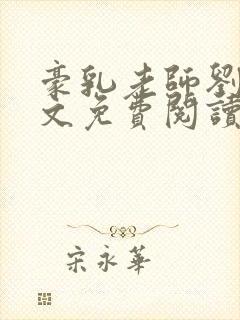 豪乳老師劉
文免費閱讀
宋永華